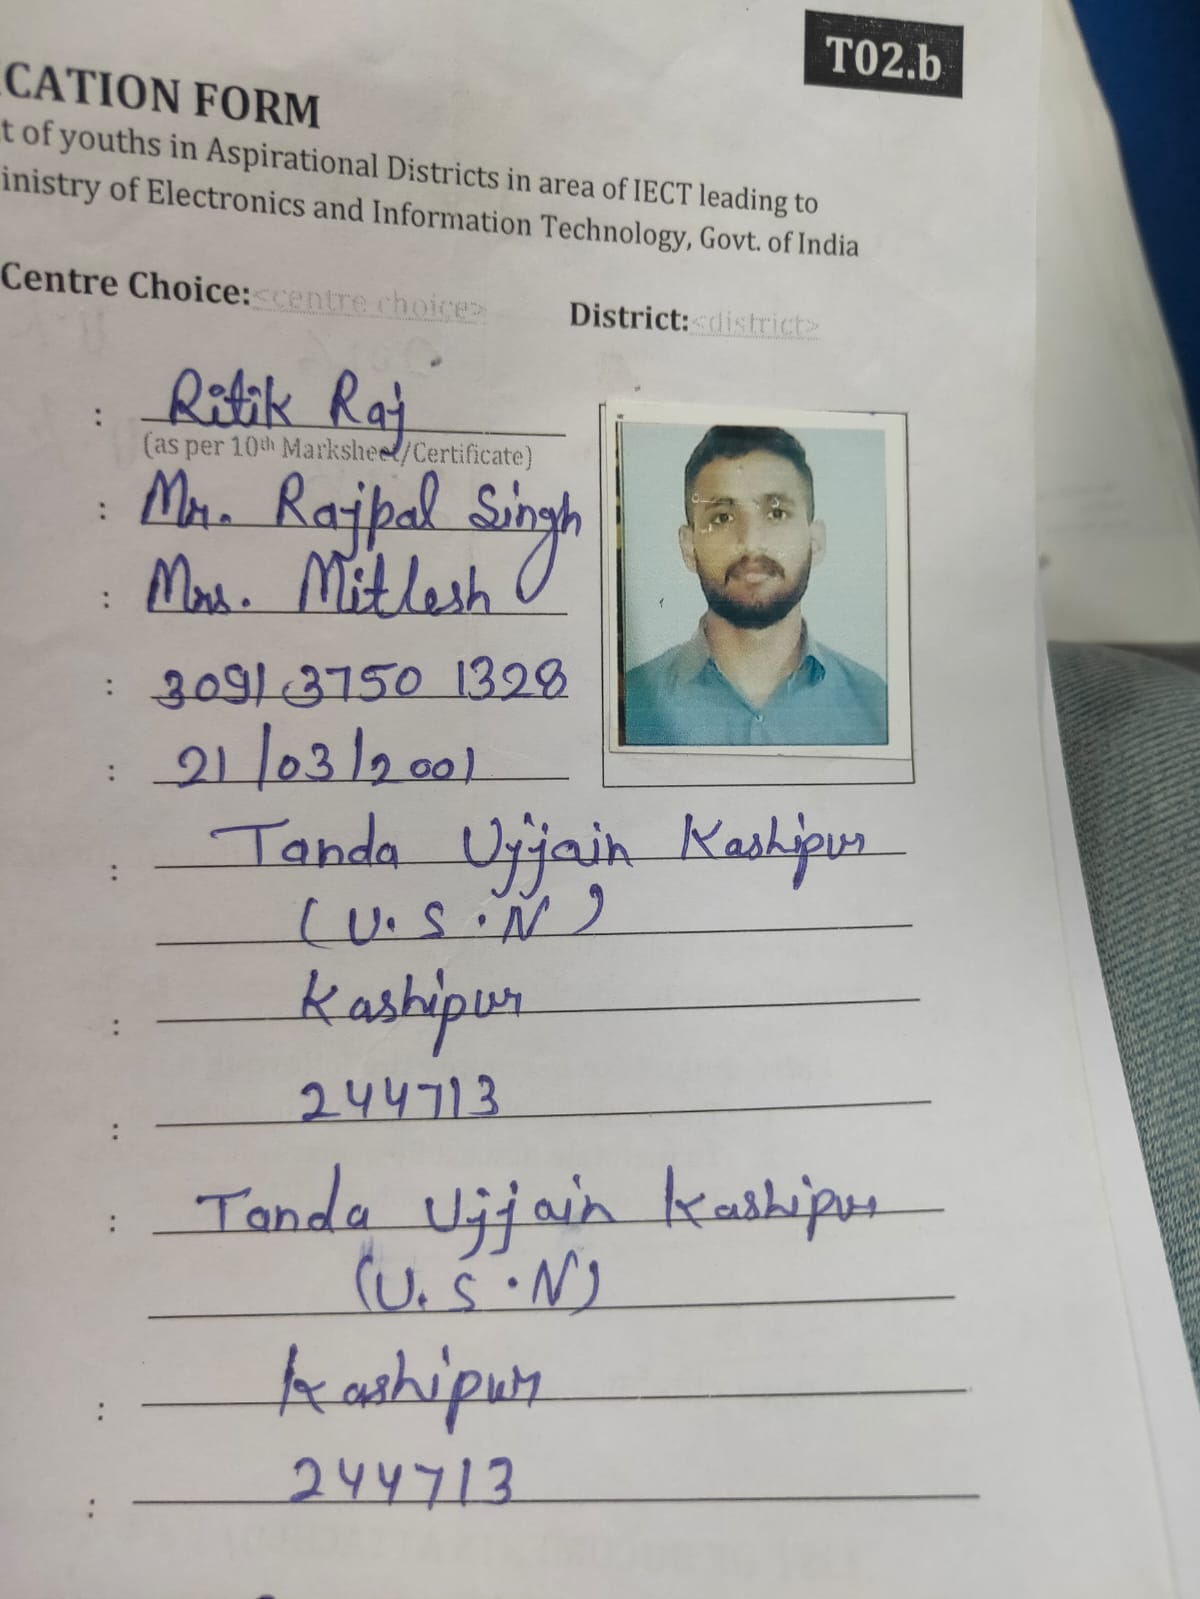 T02.b
CATION FORM
t of youths in Aspirational Districts in area of IECT leading to
inistry of Electronics and Information Technology, Govt. of India
Centre Choice:<centre choice> District:<district>
: Ritik Raj
(as per 10th Marksheet/Certificate)
: Mr. Rajpal Singh
: Mrs. Mitlesh
: 3091 3750 1328
: 21/03/2001
: Tanda Ujjain Kashipur
(U.S.N)
: Kashipur
: 244713
: Tanda Ujjain Kashipur
(U.S.N)
: Kashipur
: 244713